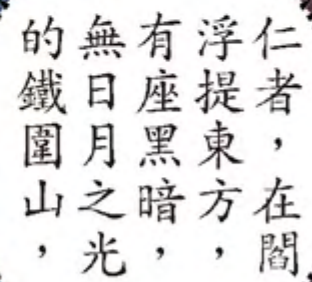 仁者，在閻
浮提東方，
有座黑暗，
無日月之光
的鐵圍山，